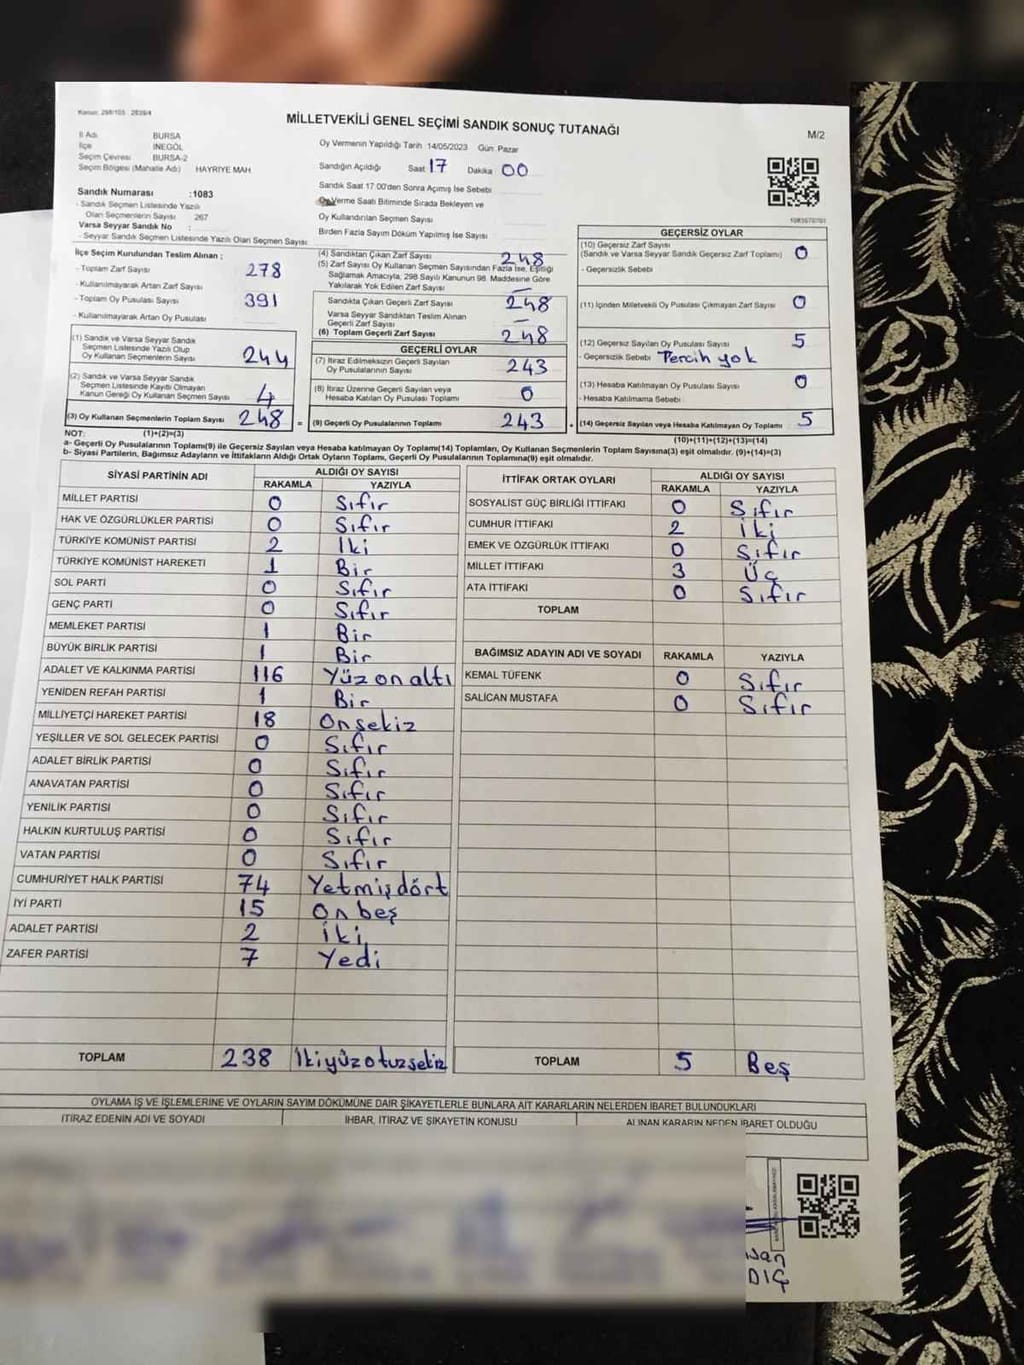 Kanun: 298/105 - 2839/4
MİLLETVEKİLİ GENEL SEÇİMİ SANDIK SONUÇ TUTANAĞI
M/2
İl Adı BURSA
İlçe İNEGÖL
Seçim Çevresi BURSA-2
Seçim Bölgesi (Mahalle Adı) HAYRİYE MAH
Oy Vermenin Yapıldığı Tarih 14/05/2023 Gün Pazar
Sandığın Açıldığı Saat 17 Dakika 00
Sandık Saat 17.00'den Sonra Açımış İse Sebebi
Oy Verme Saati Bitiminde Sırada Bekleyen ve
Oy Kullandırılan Seçmen Sayısı
Birden Fazla Sayım Döküm Yapılmış İse Sayısı
Sandık Numarası :1083
- Sandık Seçmen Listesinde Yazılı
Olan Seçmenlerin Sayısı 267
Varsa Seyyar Sandık No :
- Seyyar Sandık Seçmen Listesinde Yazılı Olan Seçmen Sayısı
İlçe Seçim Kurulundan Teslim Alınan ;
- Toplam Zarf Sayısı 278
- Kullanılmayarak Artan Zarf Sayısı
- Toplam Oy Pusulası Sayısı 391
- Kullanılmayarak Artan Oy Pusulası
(1) Sandık ve Varsa Seyyar Sandık
Seçmen Listesinde Yazılı Olup
Oy Kullanan Seçmenlerin Sayısı 244
(2) Sandık ve Varsa Seyyar Sandık
Seçmen Listesinde Kayıtlı Olmayan
Kanun Gereği Oy Kullanan Seçmen Sayısı 4
(3) Oy Kullanan Seçmenlerin Toplam Sayısı 248 =
(4) Sandıktan Çıkan Zarf Sayısı 248
(5) Zarf Sayısı Oy Kullanan Seçmen Sayısından Fazla İse, Eşitliği
Sağlamak Amacıyla, 298 Sayılı Kanunun 98. Maddesine Göre
Yakılarak Yok Edilen Zarf Sayısı —
Sandıkta Çıkan Geçerli Zarf Sayısı 248
Varsa Seyyar Sandıktan Teslim Alınan
Geçerli Zarf Sayısı —
(6) Toplam Geçerli Zarf Sayısı 248
GEÇERLİ OYLAR
(7) İtiraz Edilmeksizin Geçerli Sayılan
Oy Pusulalarının Sayısı 243
(8) İtiraz Üzerine Geçerli Sayılan veya
Hesaba Katılan Oy Pusulası Toplamı 0
(9) Geçerli Oy Pusulalarının Toplamı 243 +
1083570701
GEÇERSİZ OYLAR
(10) Geçersiz Zarf Sayısı
(Sandık ve Varsa Seyyar Sandık Geçersiz Zarf Toplamı) 0
- Geçersizlik Sebebi
(11) İçinden Milletvekili Oy Pusulası Çıkmayan Zarf Sayısı 0
(12) Geçersiz Sayılan Oy Pusulası Sayısı 5
- Geçersizlik Sebebi Percih yok
(13) Hesaba Katılmayan Oy Pusulası Sayısı 0
- Hesaba Katılmama Sebebi
(14) Geçersiz Sayılan veya Hesaba Katılmayan Oy Toplamı 5
NOT: (1)+(2)=(3) (10)+(11)+(12)+(13)=(14)
a- Geçerli Oy Pusulalarının Toplamı(9) ile Geçersiz Sayılan veya Hesaba Katılmayan Oy Toplamı(14) Toplamları, Oy Kullanan Seçmenlerin Toplam Sayısına(3) eşit olmalıdır. (9)+(14)=(3)
b- Siyasi Partilerin, Bağımsız Adayların ve İttifakların Aldığı Ortak Oyların Toplamı, Geçerli Oy Pusulalarının Toplamına(9) eşit olmalıdır.
SİYASİ PARTİNİN ADI ALDIĞI OY SAYISI
RAKAMLA YAZIYLA
MİLLET PARTİSİ 0 Sıfır
HAK VE ÖZGÜRLÜKLER PARTİSİ 0 Sıfır
TÜRKİYE KOMÜNİST PARTİSİ 2 İki
TÜRKİYE KOMÜNİST HAREKETİ 1 Bir
SOL PARTİ 0 Sıfır
GENÇ PARTİ 0 Sıfır
MEMLEKET PARTİSİ 1 Bir
BÜYÜK BİRLİK PARTİSİ 1 Bir
ADALET VE KALKINMA PARTİSİ 116 Yüz on altı
YENİDEN REFAH PARTİSİ 1 Bir
MİLLİYETÇİ HAREKET PARTİSİ 18 Onsekiz
YEŞİLLER VE SOL GELECEK PARTİSİ 0 Sıfır
ADALET BİRLİK PARTİSİ 0 Sıfır
ANAVATAN PARTİSİ 0 Sıfır
YENİLİK PARTİSİ 0 Sıfır
HALKIN KURTULUŞ PARTİSİ 0 Sıfır
VATAN PARTİSİ 0 Sıfır
CUMHURİYET HALK PARTİSİ 74 Yetmişdört
İYİ PARTİ 15 On beş
ADALET PARTİSİ 2 İki
ZAFER PARTİSİ 7 Yedi
TOPLAM 238 İkiyüzotuzsekiz
İTTİFAK ORTAK OYLARI ALDIĞI OY SAYISI
RAKAMLA YAZIYLA
SOSYALİST GÜÇ BİRLİĞİ İTTİFAKI 0 Sıfır
CUMHUR İTTİFAKI 2 İki
EMEK VE ÖZGÜRLÜK İTTİFAKI 0 Sıfır
MİLLET İTTİFAKI 3 Üç
ATA İTTİFAKI 0 Sıfır
TOPLAM
BAĞIMSIZ ADAYIN ADI VE SOYADI RAKAMLA YAZIYLA
KEMAL TÜFENK 0 Sıfır
SALİCAN MUSTAFA 0 Sıfır
TOPLAM 5 Beş
OYLAMA İŞ VE İŞLEMLERİNE VE OYLARIN SAYIM DÖKÜMÜNE DAİR ŞİKAYETLERLE BUNLARA AİT KARARLARIN NELERDEN İBARET BULUNDUKLARI
İTİRAZ EDENİN ADI VE SOYADI İHBAR, İTİRAZ VE ŞİKAYETİN KONUSU ALINAN KARARIN NEDEN İBARET OLDUĞU